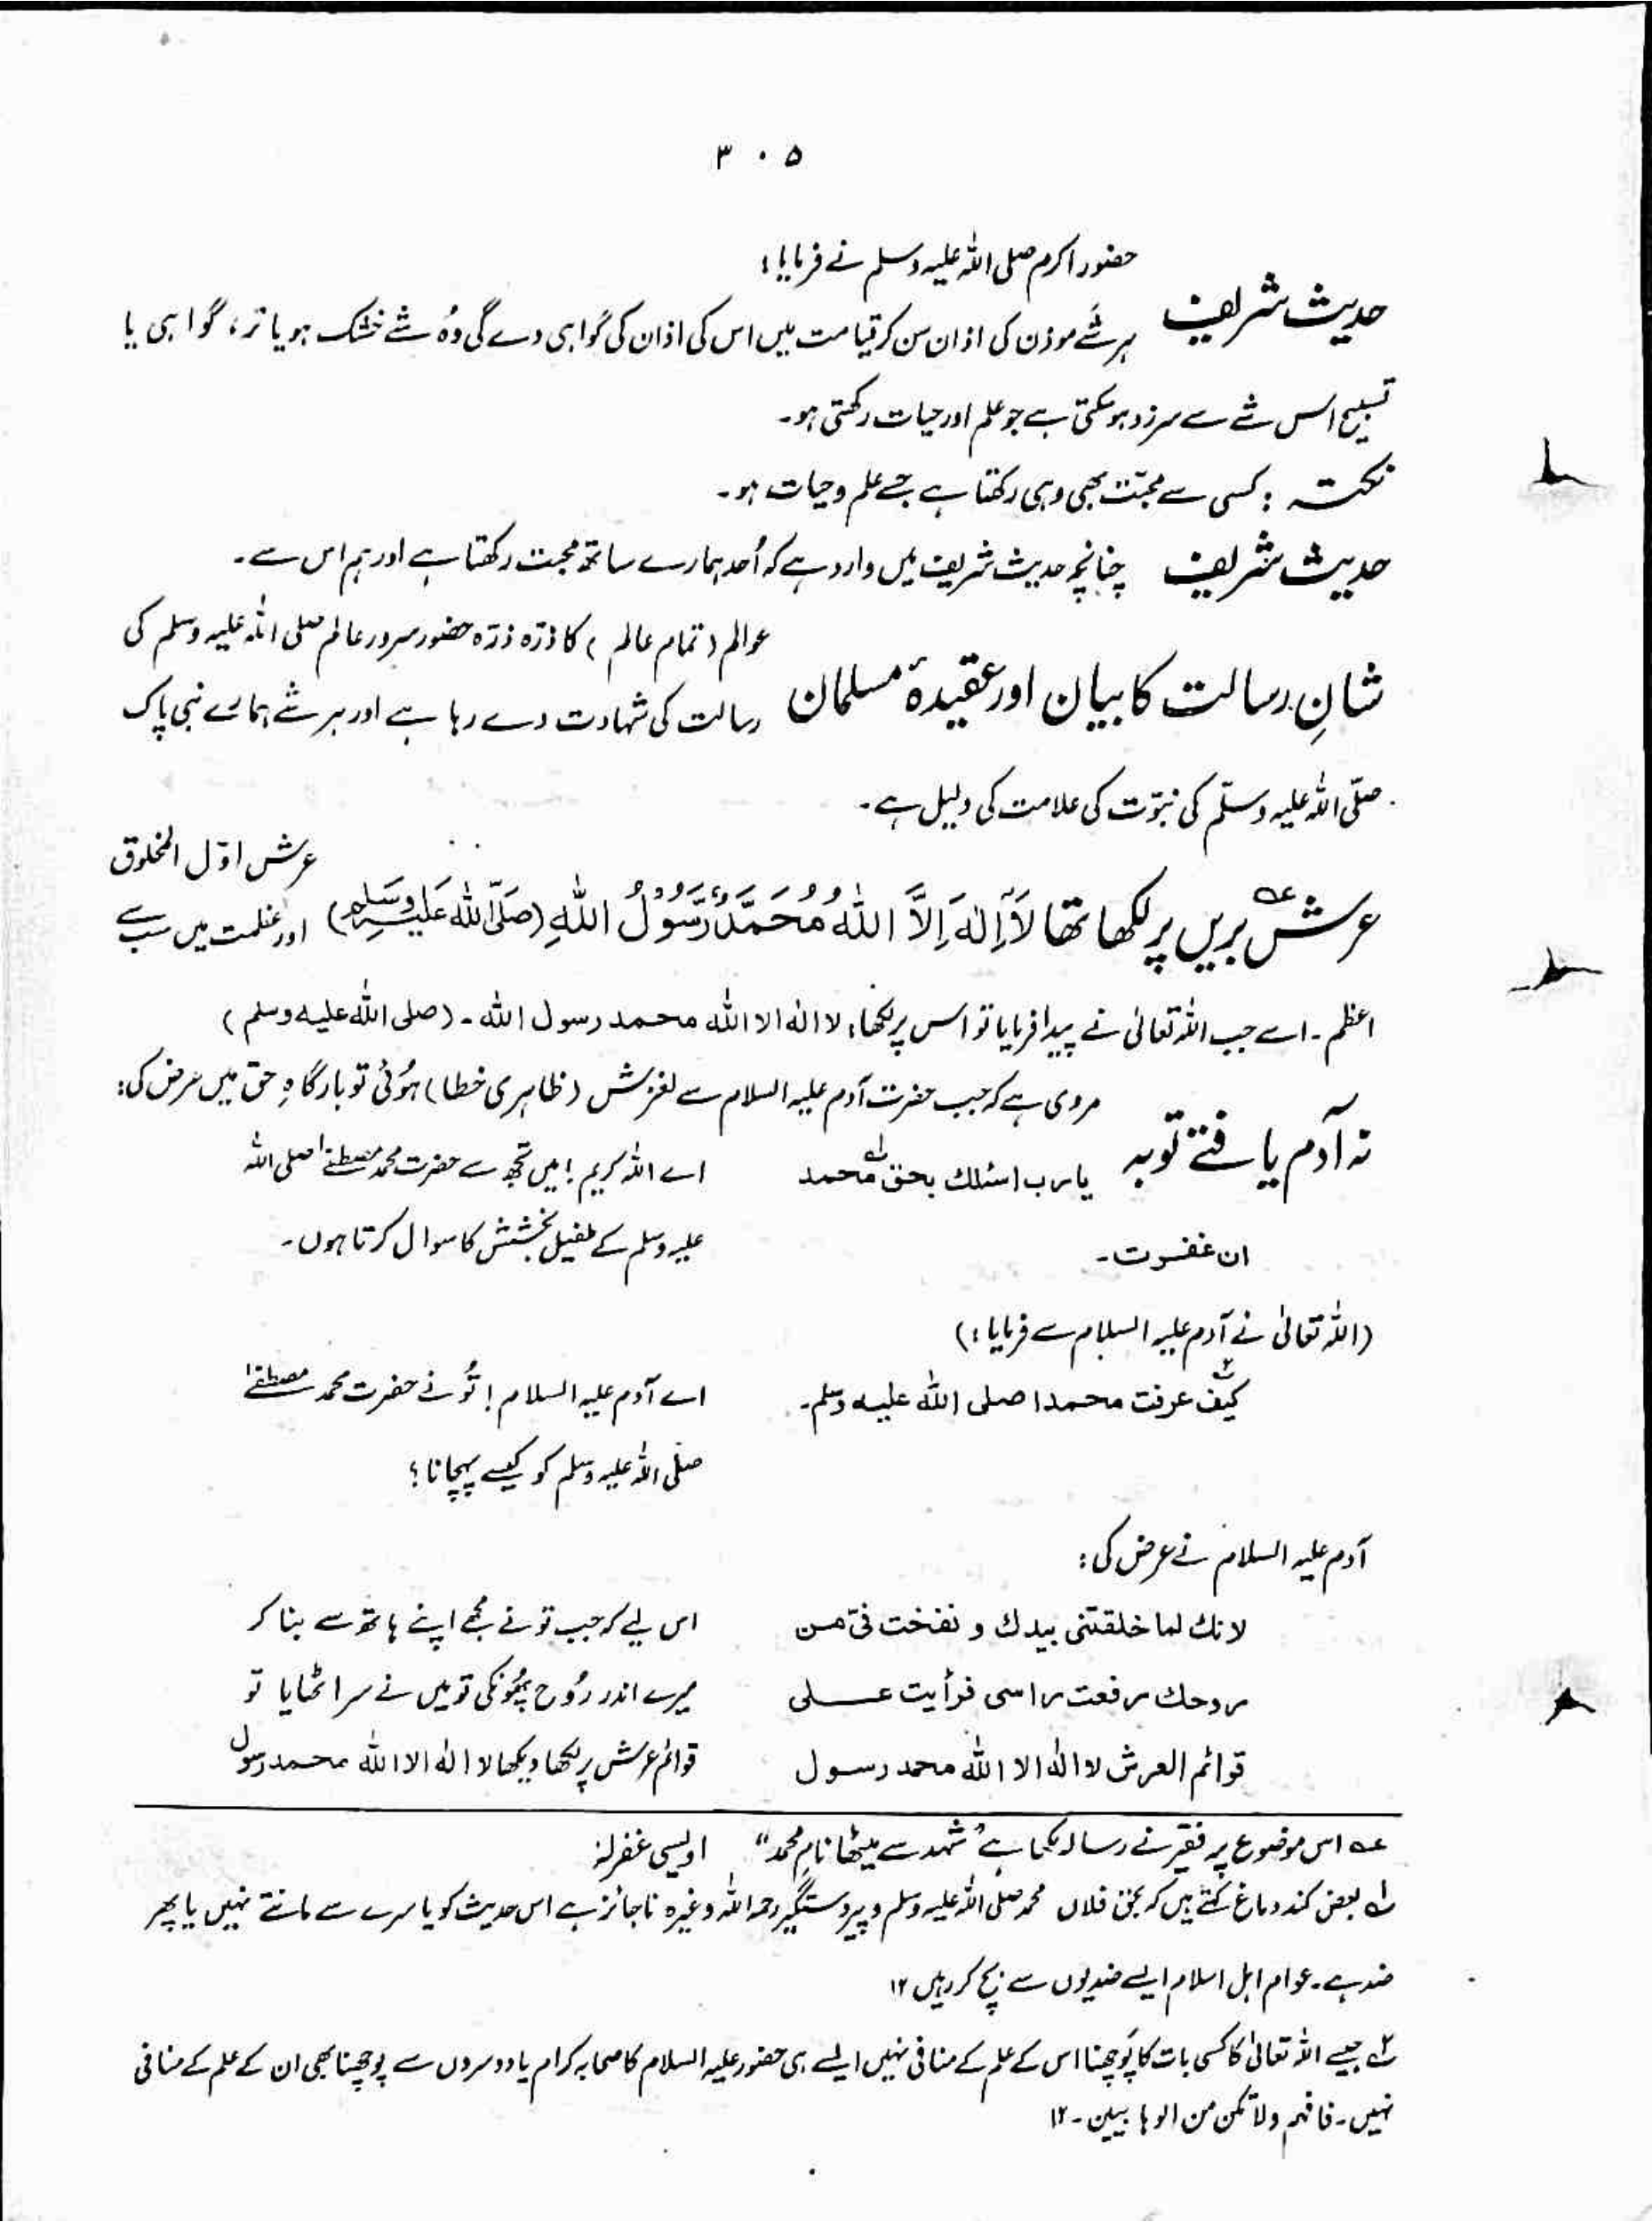 ۳۰۵
حضور اکرم صلی اللہ علیہ وسلم نے فرمایا:
حدیث شریف
ہر شے موذن کی اذان سن کر قیامت میں اس کی اذان کی گواہی دے گی وُہ شے خشک ہو یا تر، گواہی یا
تسبیح اس شے سے سرزد ہو سکتی ہے جو علم اور حیات رکھتی ہو۔
نکتہ : کسی سے محبّت بھی وہی رکھتا ہے جسے علم و حیات ہو۔
حدیث شریف چنانچہ حدیث شریف میں وارد ہے کہ اُحد ہمارے ساتھ محبت رکھتا ہے اور ہم اس سے۔
عوالم (تمام عالم) کا ذرّہ ذرّہ حضور سرور عالم صلی اللہ علیہ وسلم کی
شانِ رسالت کا بیان اور عقیدۂ مسلمان
رسالت کی شہادت دے رہا ہے اور ہر شے ہمارے نبی پاک
صلّی اللہ علیہ وسلّم کی نبوّت کی علامت کی دلیل ہے۔
عرش اوّل المخلوق
عرش بریں پر لکھا تھا لَآ اِلٰہَ اِلَّا اللہُ مُحَمَّدٌ رَّسُوْلُ اللہِ (صَلَّی اللہُ عَلَیْہِ وَسَلَّم)
اور عظمت میں سب سے
اعظم۔ اسے جب اللہ تعالیٰ نے پیدا فرمایا تو اس پر لکھا: لا الہ الا اللہ محمد رسول اللہ۔ (صلی اللہ علیہ وسلم)
مروی ہے کہ جب حضرت آدم علیہ السلام سے لغزش (ظاہری خطا) ہُوئی تو بارگاہِ حق میں عرض کی:
نہ آدم یافتے توبہ
یا رب اسئلك بحق محمد ؎۱
اے اللہ کریم! میں تجھ سے حضرت محمد مصطفےٰ صلی اللہ
ان غفرت۔
علیہ وسلم کے طفیل بخشش کا سوال کرتا ہوں۔
(اللہ تعالیٰ نے آدم علیہ السلام سے فرمایا:)
کیف ؎۲ عرفت محمدا صلی اللہ علیہ وسلم۔
اے آدم علیہ السلام! تُو نے حضرت محمد مصطفےٰ
صلّی اللہ علیہ وسلم کو کیسے پہچانا؟
آدم علیہ السلام نے عرض کی:
لانك لما خلقتنی بیدك و نفخت فیّ من
اس لیے کہ جب تو نے مجھے اپنے ہاتھ سے بنا کر
روحك رفعت راسی فرأیت علی
میرے اندر رُوح پھُونکی تو میں نے سر اٹھایا تو
قوائم العرش لا الہ الا اللہ محمد رسول
قوائم عرش پر لکھا دیکھا لا الہ الا اللہ محمد رسول
عہ اس موضوع پر فقیر نے رسالہ لکھا ہے "شہد سے میٹھا نامِ محمد" اویسی غفرلہٗ
؎۱ بعض کند دماغ کہتے ہیں کہ بحق فلاں محمد صلی اللہ علیہ وسلم و پیر دستگیر رحمہ اللہ وغیرہ ناجائز ہے اس حدیث کو یا سرے سے مانتے نہیں یا پھر
ضد ہے۔ عوام اہل اسلام ایسے ضدیوں سے بچ کر رہیں ۱۲
؎۲ جیسے اللہ تعالیٰ کا کسی بات کا پُوچھنا اس کے علم کے منافی نہیں ایسے ہی حضور علیہ السلام کا صحابہ کرام یا دوسروں سے پوچھنا بھی ان کے علم کے منافی
نہیں۔ فافہم ولا تکن من الوہابیین۔ ۱۲